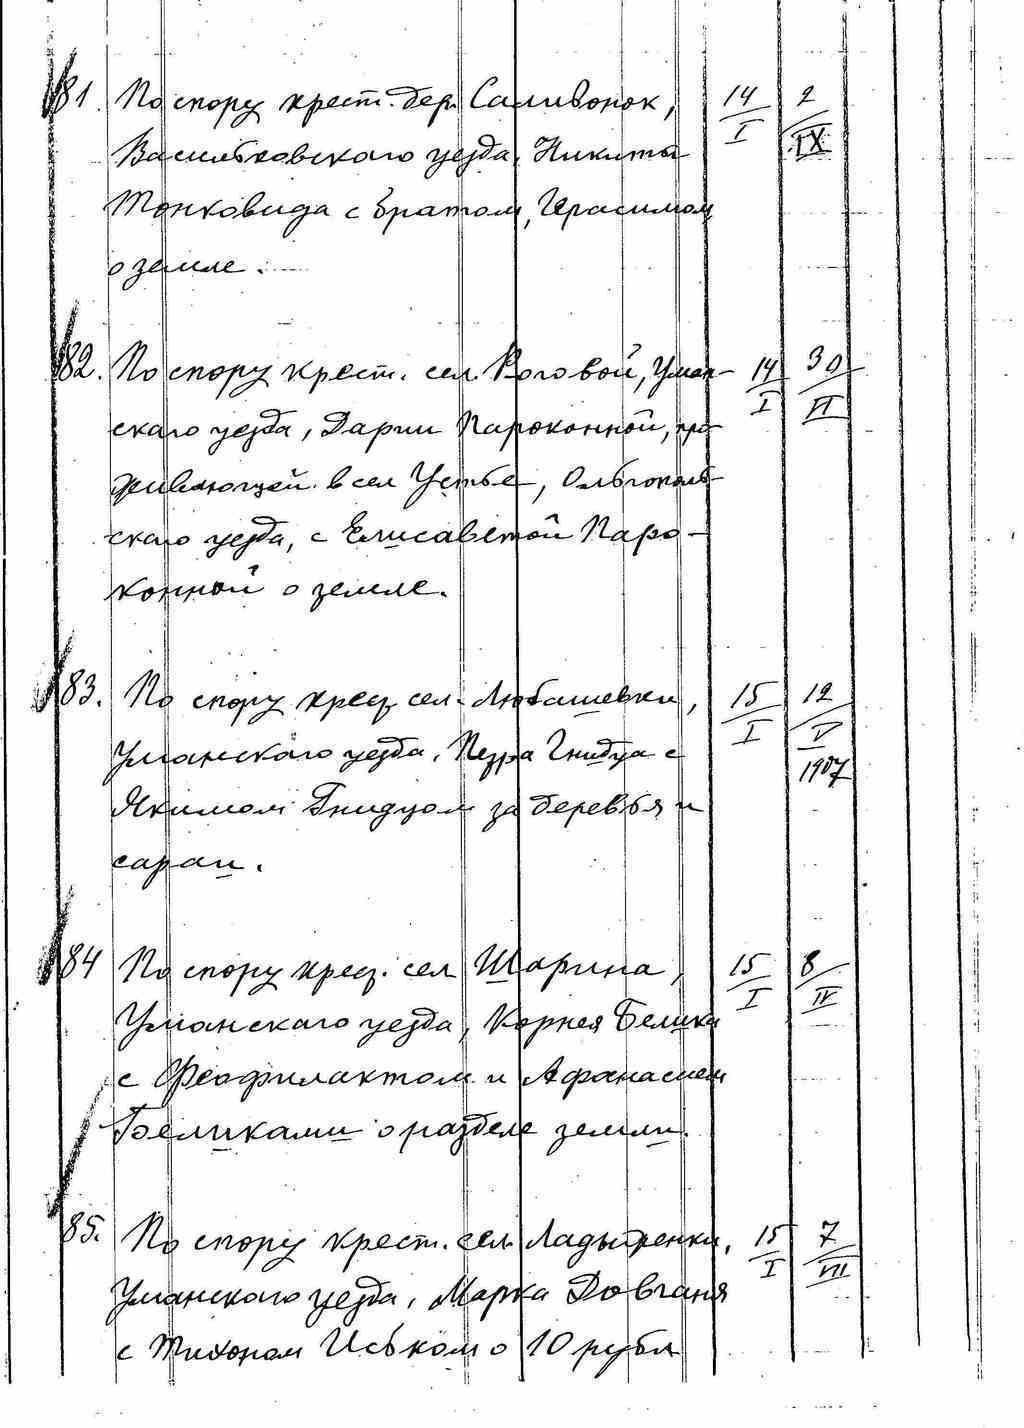 81. По спору крест. дер. Саливонок, 14/I 2/IX
Васильковского уезда, Никиты
Тонковида с братом, Герасимом
о земле.
82. По спору крест. сел. Роговой, Уман- 14/I 30/VI
скаго уезда, Дарии Пароконной, про-
живающей в сел Устье, Ольгополь-
скаго уезда, с Елисаветой Паро-
конной о земле.
83. По спору крест. сел. Любашевки, 15/I 12/V 1907
Уманскаго уезда, Петра Гнидца с
Якимом Гнидцом за деревья и
сараи.
84 По спору крест. сел Шарина, 15/I 8/IV
Уманскаго уезда, Корнея Белика
с Феофилактом и Афанасием
Беликами о разделе земли.
85. По спору крест. сел. Ладыженки, 15/I 7/VIII
Уманского уезда, Марка Довганя
с Тихоном Иськом о 10 рубл